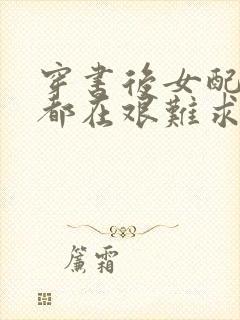 穿书後女配
都在艰難求
簾霜